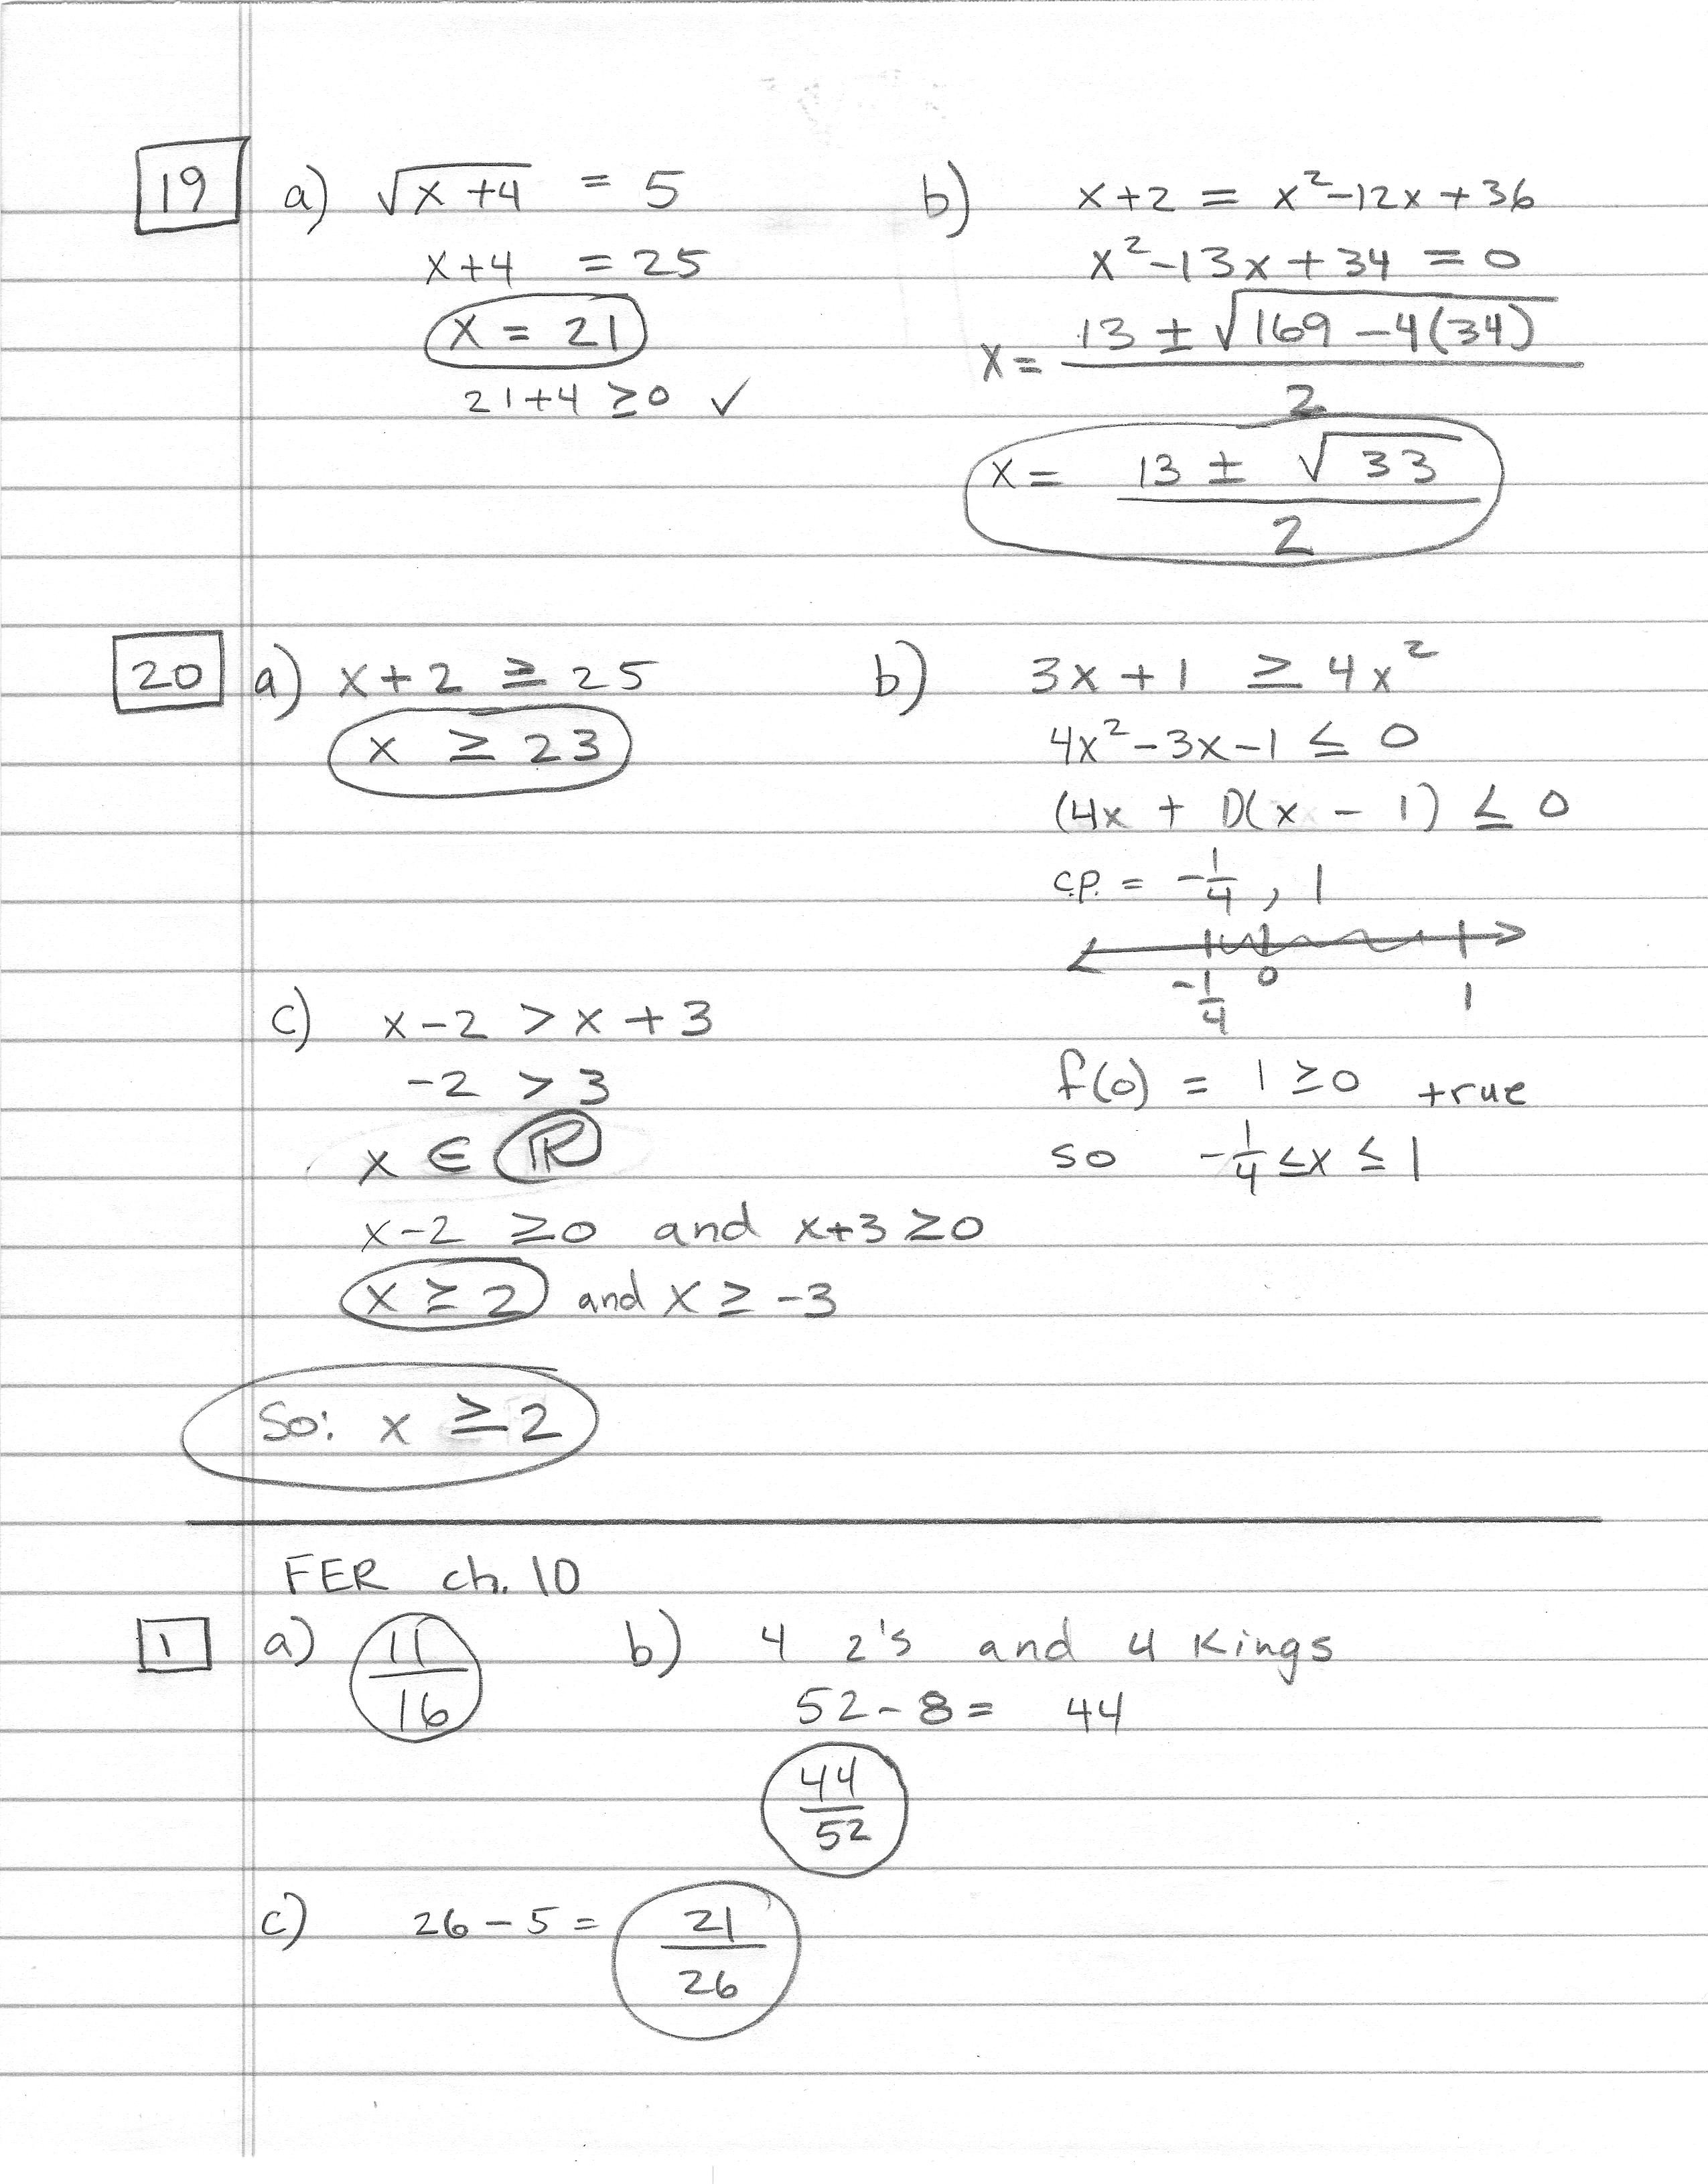 19 a) √(x+4) = 5
x+4 = 25
x = 21
21+4 ≥0 ✓
b) x+2 = x²-12x+36
x²-13x+34 = 0
x = (13 ± √(169-4(34)))/2
x = (13 ± √33)/2
20 a) x+2 ≥ 25
x ≥ 23
b) 3x+1 ≥ 4x²
4x²-3x-1 ≤ 0
(4x + 1)(x - 1) ≤ 0
c.p. = -1/4, 1
-1/4 0 1
f(0) = 1 ≥0 true
so -1/4 ≤x ≤ 1
c) x-2 > x+3
-2 > 3
x ∈ ℝ
x-2 ≥0 and x+3 ≥0
x ≥ 2 and x ≥ -3
So: x ≥2
FER ch. 10
1 a) 11/16
b) 4 2's and 4 Kings
52-8= 44
44/52
c) 26-5= 21/26